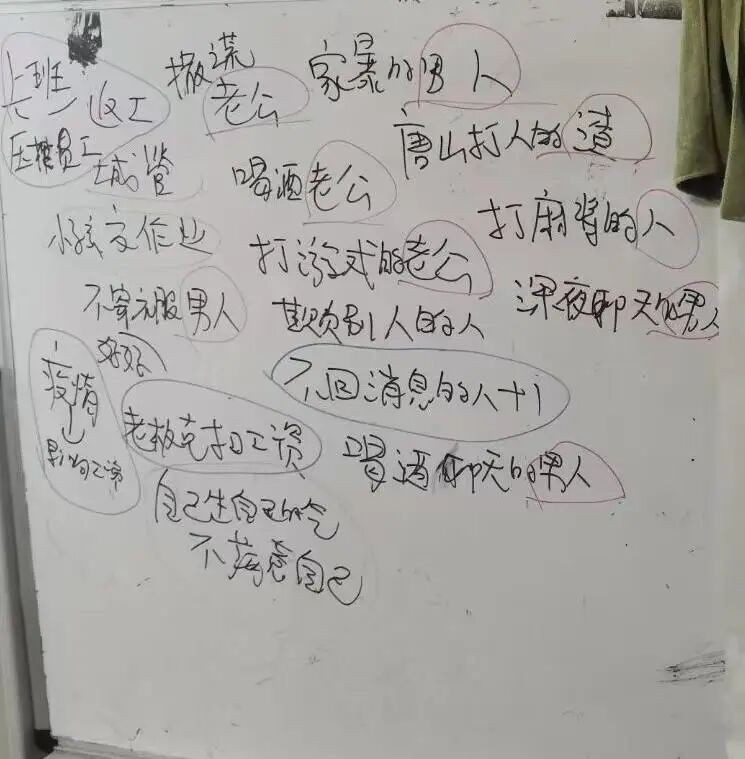 撒谎
老公
家暴的男人
上班 返工
压榨员工
唐山打人的渣
城管
喝酒老公
打麻将的人
小孩交作业
打游戏的老公
深夜聊天的男人
不穿衣服男人
欺负别人的人
好好
疫情
不回消息的人+1
老板克扣工资
喝酒聊天的男人
自己生自己的气
不满意自己